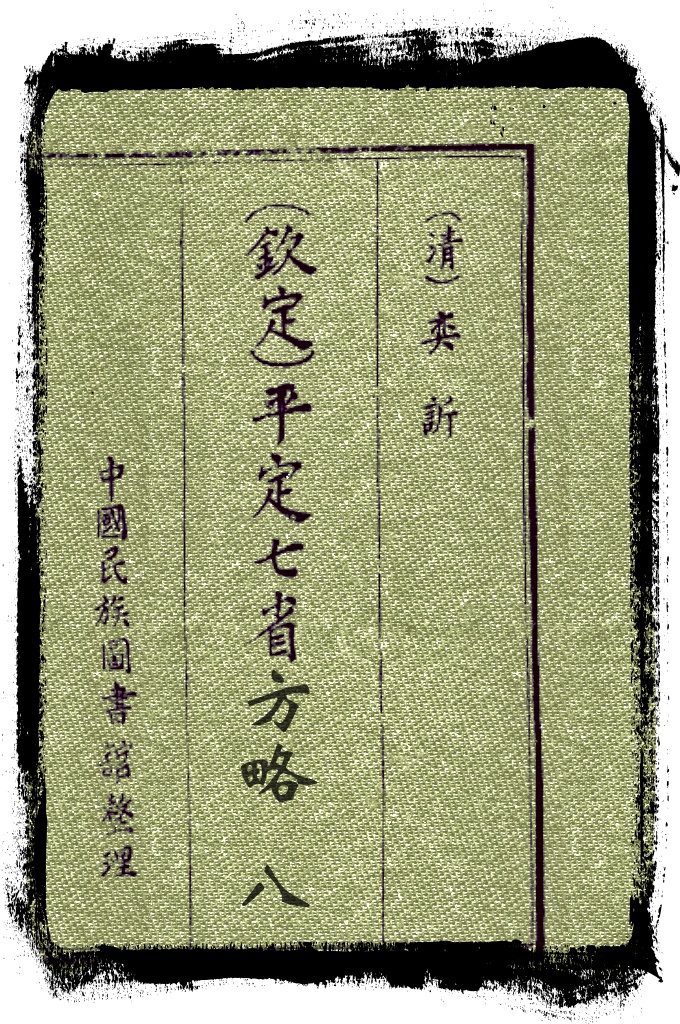 （清）奕訢
（欽定）平定七省方略 八
中國民族圖書館整理